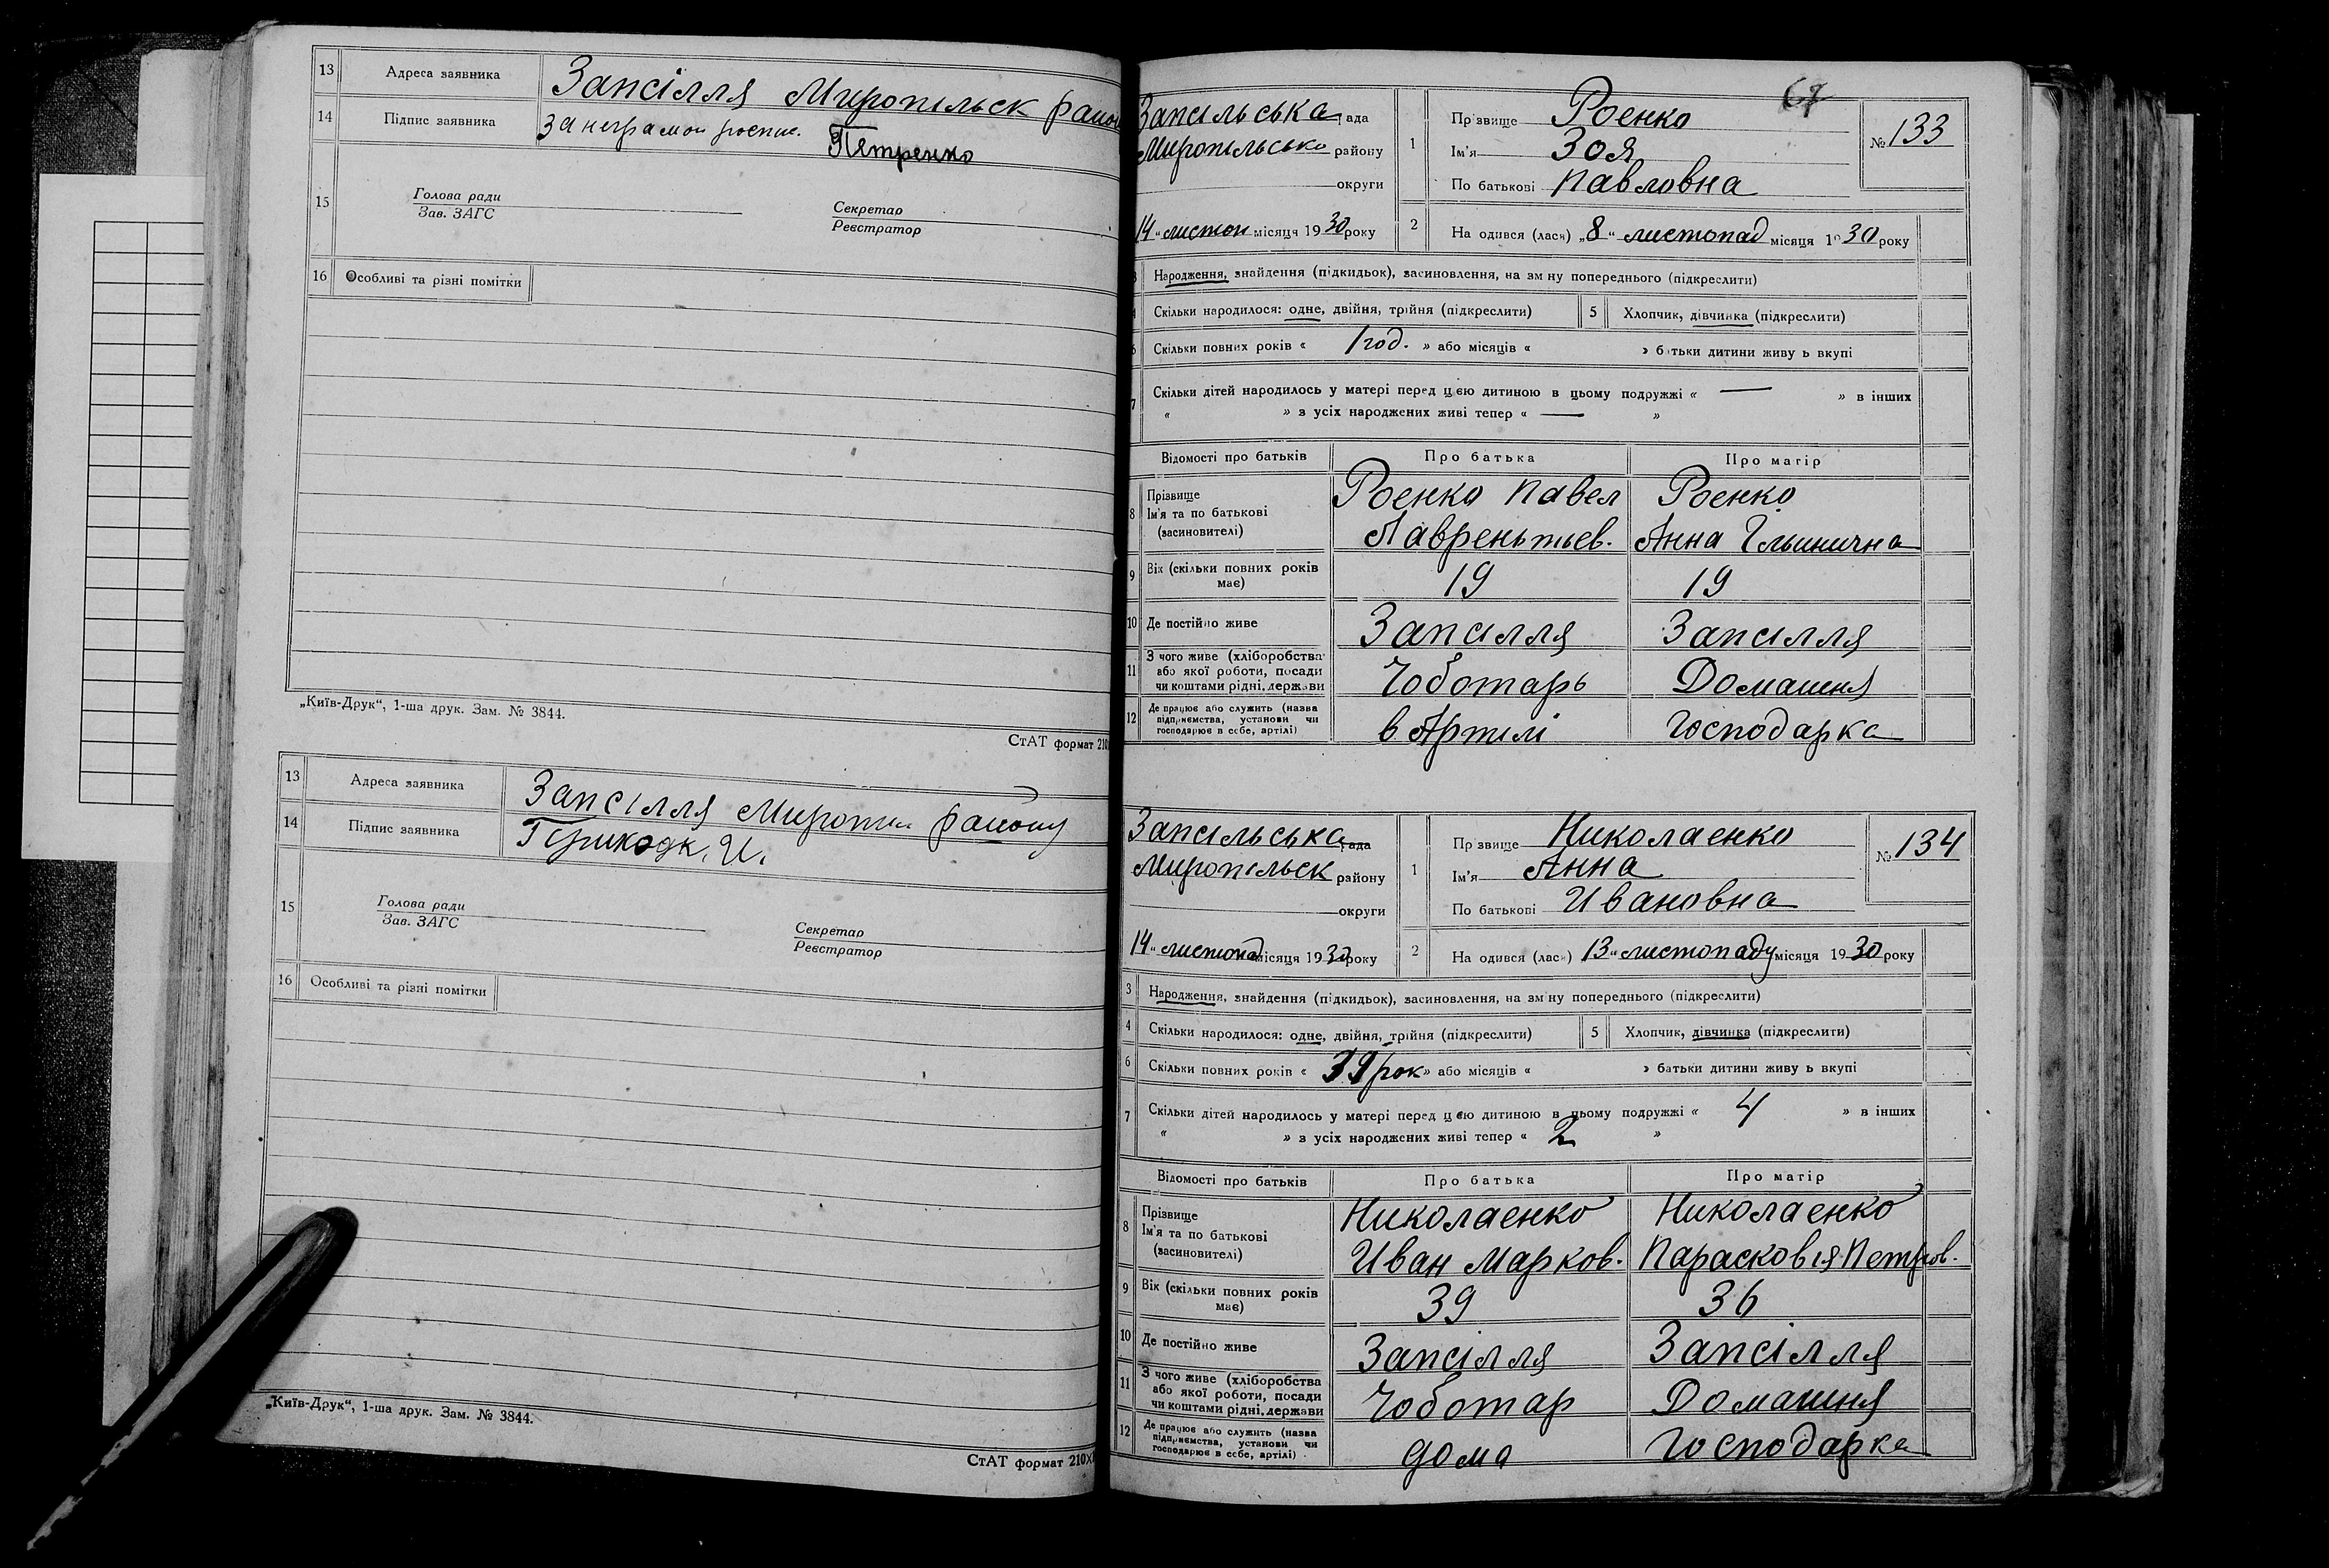 13 Адреса заявника Запсілля Миропільск район
14 Підпис заявника за неграмот роспис. Петренко
15 Голова ради
Зав. ЗАГС
Секретар
Реєстратор
16 Особливі та різні помітки
„Київ-Друк“, 1-ша друк. Зам. № 3844.
СтАТ формат 210
13 Адреса заявника Запсілля Миропіл району
14 Підпис заявника
15 Голова ради
Зав. ЗАГС
Секретар
Реєстратор
16 Особливі та різні помітки
„Київ-Друк“, 1-ша друк. Зам. № 3844.
СтАТ формат 210х
67
Запсільська рада
Миропільсько району
округи
14 „ листоп місяця 1930 року
1 Прізвище Роенко
Ім'я Зоя
По батькові Павловна
№ 133
2 На одився (лася) „8“ листопад місяця 1930 року
Народження, знайдення (підкидьок), засиновлення, на зм ну попереднього (підкреслити)
Скільки народилося: одне, двійня, трійня (підкреслити) 5 Хлопчик, дівчинка (підкреслити)
6 Скільки повних років « 1 год. » або місяців « » батьки дитини живу ь вкупі
7 Скільки дітей народилось у матері перед цією дитиною в цьому подружжі « — » в інших
« » з усіх народжених живі тепер « — »
Відомості про батьків Про батька Про матір
8 Прізвище
Ім'я та по батькові
(засиновителі)
Роенко Павел
Лаврентьев.
Роенко
Анна Ильинична
9 Вік (скільки повних років має) 19 19
10 Де постійно живе Запсілля Запсілля
11 З чого живе (хліборобства
або якої роботи, посади
чи коштами рідні, держави
Чоботарь Домашня
12 Де працює або служить (назва
підприємства, установи чи
господарює в себе, артілі)
в Артилі Господарка
Запсільська рада
Миропільск району
округи
14 „ листопад місяця 1930 року
1 Прізвище Николаенко
Ім'я Анна
По батькові Ивановна
№ 134
2 На одився (лася) 13 „ листопаду місяця 1930 року
3 Народження, знайдення (підкидьок), засиновлення, на зм ну попереднього (підкреслити)
4 Скільки народилося: одне, двійня, трійня (підкреслити) 5 Хлопчик, дівчинка (підкреслити)
6 Скільки повних років « рок » або місяців « » батьки дитини живу ь вкупі
7 Скільки дітей народилось у матері перед цією дитиною в цьому подружжі « 4 » в інших
« » з усіх народжених живі тепер « 2 »
Відомості про батьків Про батька Про матір
8 Прізвище
Ім'я та по батькові
(засиновителі)
Николаенко
Иван Марков.
Николаенко
Парасковія Петров.
9 Вік (скільки повних років має) 39 36
10 Де постійно живе Запсілля Запсілля
11 З чого живе (хліборобства
або якої роботи, посади
чи коштами рідні, держави
Чоботар Домашня
12 Де працює або служить (назва
підприємства, установи чи
господарює в себе, артілі)
дома Господарка